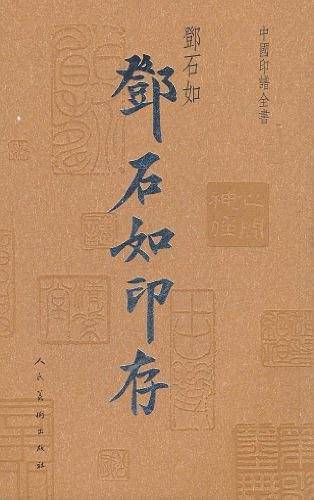 中國印譜全書
鄧石如
鄧石如印存
人民美術出版社